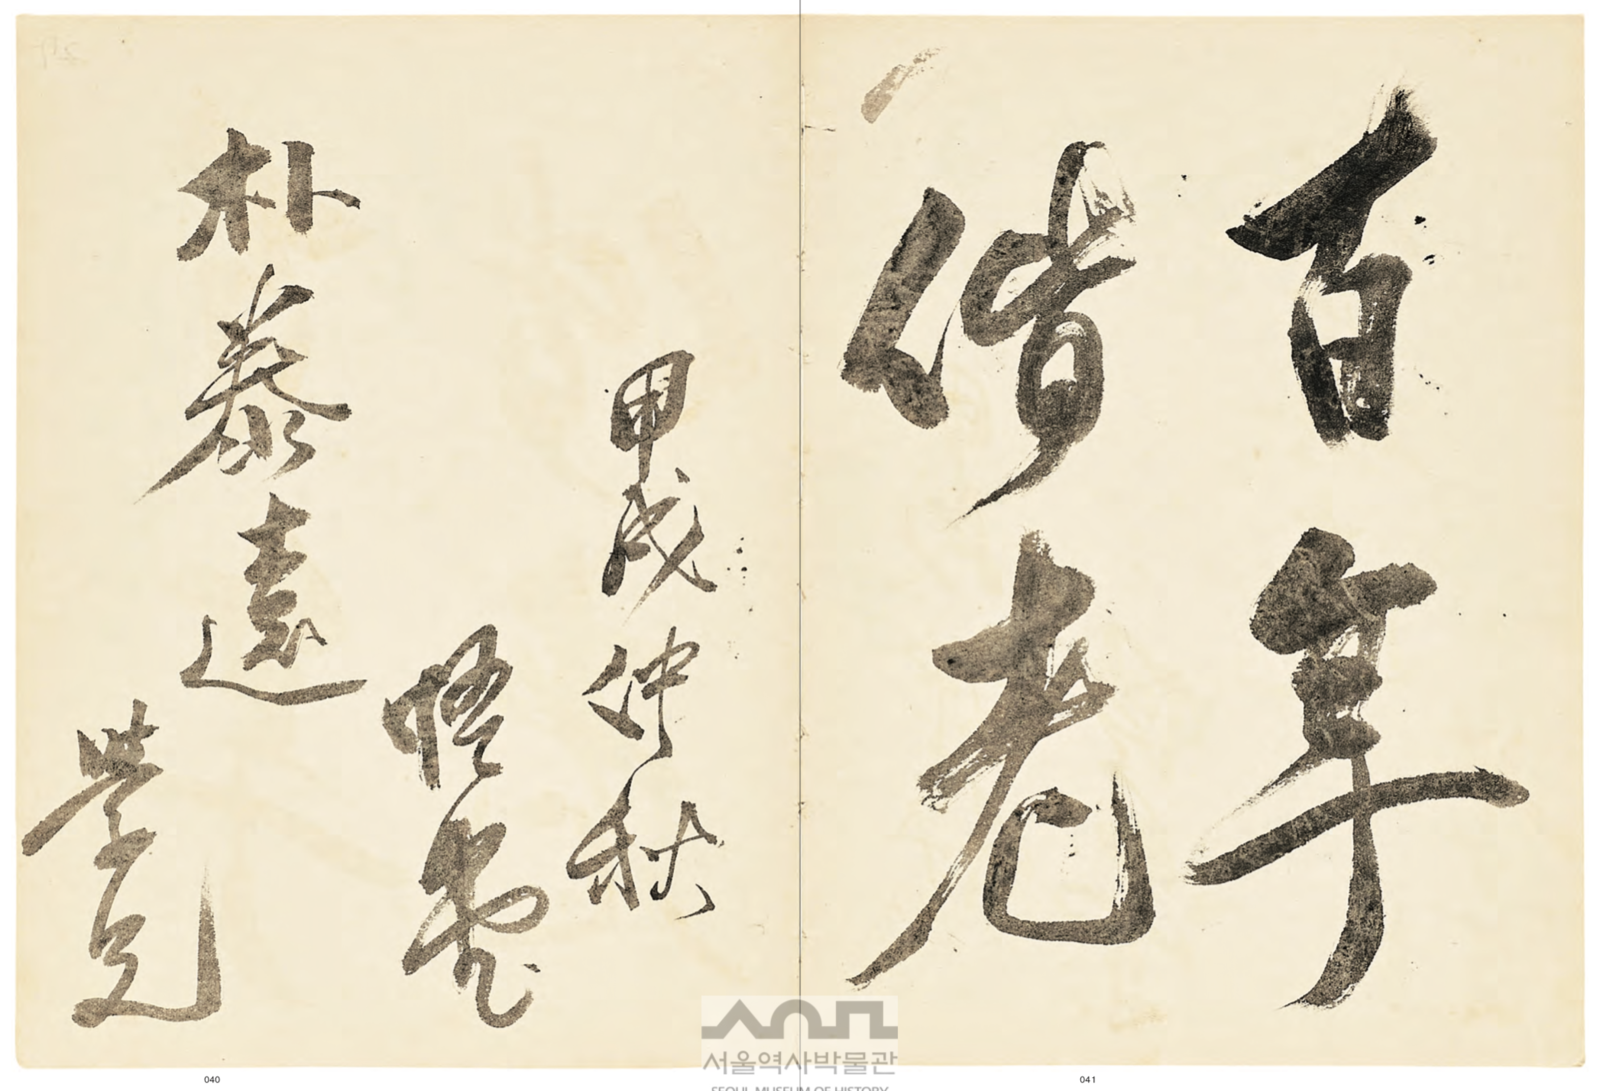 百年
偕老
甲戌仲秋
悟
朴泰遠
學兄
서울역사박물관
SEOUL MUSEUM OF HISTORY
040
041